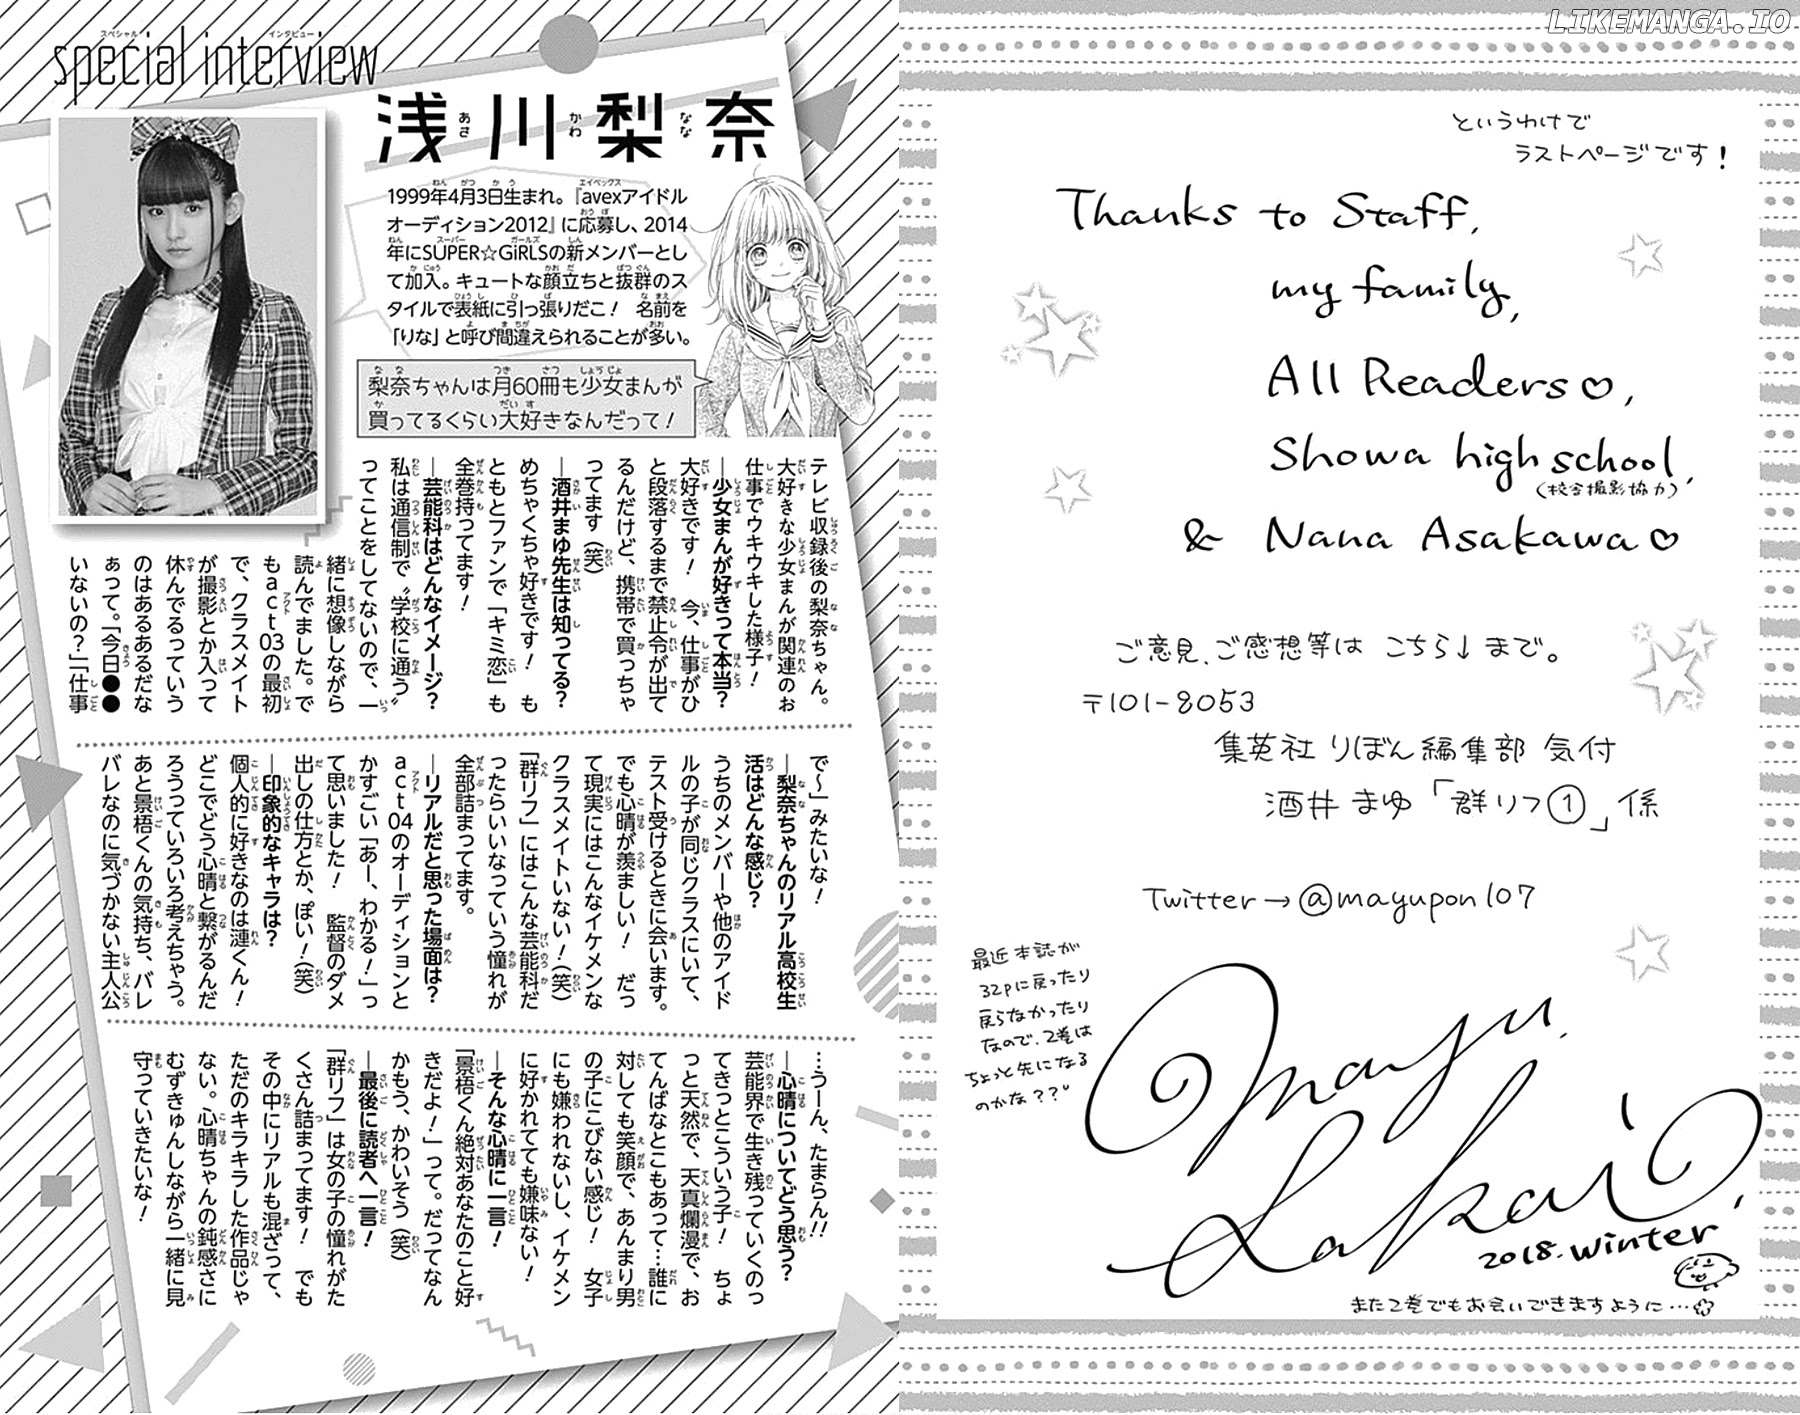 special interview
スペシャル インタビュー
浅川梨奈
あさ かわ なな
1999年4月3日生まれ。『avexアイドル
オーディション2012』に応募し、2014
年にSUPER☆GiRLSの新メンバーとし
て加入。キュートな顔立ちと抜群のス
タイルで表紙に引っ張りだこ！ 名前を
「りな」と呼び間違えられることが多い。
梨奈ちゃんは月60冊も少女まんが
買ってるくらい大好きなんだって！
テレビ収録後の梨奈ちゃん。
大好きな少女まんが関連のお
仕事でウキウキした様子！
―少女まんが好きって本当？
大好きです！ 今、仕事がひ
と段落するまで禁止令が出て
るんだけど、携帯で買っちゃ
ってます（笑）
―酒井まゆ先生は知ってる？
めちゃくちゃ好きです！ も
ともとファンで「キミ恋」も
全巻持ってます！
―芸能科はどんなイメージ？
私は通信制で〝学校に通う〟
ってことをしてないので、一
緒に想像しながら
読んでました。で
もact03の最初
で、クラスメイト
が撮影とか入って
休んでるっていう
のはあるあるだな
あって。「今日●●
いないの？」「仕事
で～」みたいな！
―梨奈ちゃんのリアル高校生
活はどんな感じ？
うちのメンバーや他のアイド
ルの子が同じクラスにいて、
テスト受けるときに会います。
でも心晴が羨ましい！ だっ
て現実にはこんなイケメンな
クラスメイトいない！（笑）
『群リフ』にはこんな芸能科だ
ったらいいなっていう憧れが
全部詰まってます。
―リアルだと思った場面は？
act04のオーディションと
かすごい「あー、わかる！」っ
て思いました！ 監督のダメ
出しの仕方とか、ぽい！（笑）
―印象的なキャラは？
個人的に好きなのは漣くん！
どこでどう心晴と繋がるんだ
ろうっていろいろ考えちゃう。
あと景悟くんの気持ち、バレ
バレなのに気づかない主人公
…うーん、たまらん!!
―心晴についてどう思う？
芸能界で生き残っていくのっ
てきっとこういう子！ ちょ
っと天然で、天真爛漫で、お
てんばなとこもあって…誰に
対しても笑顔で、あんまり男
の子にこびない感じ！ 女子
にも嫌われないし、イケメン
に好かれてても嫌味ない！
―そんな心晴に一言！
「景悟くん絶対あなたのこと好
きだよ！」って。だってなん
かもう、かわいそう（笑）
―最後に読者へ一言！
『群リフ』は女の子の憧れがた
くさん詰まってます！ でも
その中にリアルも混ざって、
ただのキラキラした作品じゃ
ない。心晴ちゃんの鈍感さに
むずきゅんしながら一緒に見
守っていきたいな！
LIKEMANGA.IO
というわけで
ラストページです！
Thanks to Staff,
my family,
All Readers♡,
Showa high school,
(校舎撮影協力)
& Nana Asakawa♡
ご意見、ご感想等は こちら↓まで。
〒101-8053
集英社 りぼん編集部 気付
酒井まゆ「群リフ①」係
Twitter→@mayupon107
最近本誌が
32pに戻ったり
戻らなかったり
なので、2巻は
ちょっと先になる
のかな??
Mayu.
Sakai
2018.winter.
また2巻でもお会いできますように…